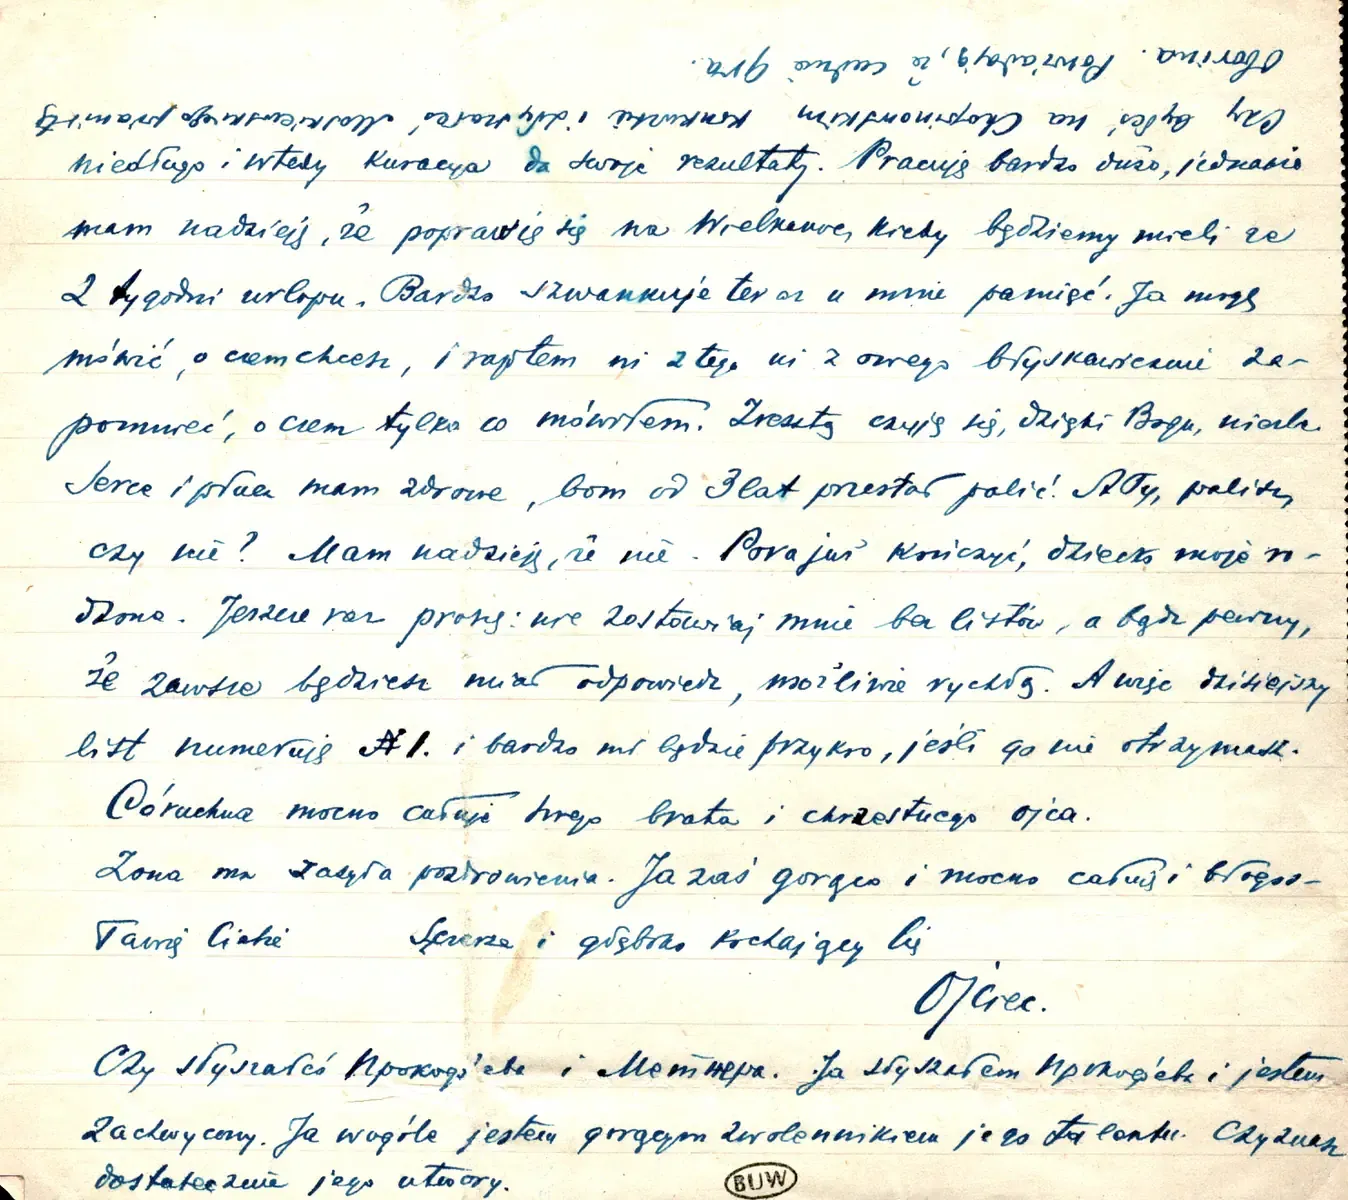 Czy byłeś na Chopinowskim konkursie i słyszałeś Moskiewskiego pianistę
Oborina. Powiadają, że cudnie gra.
niedługo i wtedy kuracya da swoje rezultaty. Pracuję bardzo dużo, jednakże
mam nadzieję, że poprawię się na Wielkanoc, kiedy będziemy mieli ze
2 tygodni urlopu. Bardzo szwankuje teraz u mnie pamięć. Ja mogę
mówić, o czem chcesz, i raptem ni z tego ni z owego błyskawicznie za-
pomnieć, o czem tylko co mówiłem. Zresztą czuję się, dzięki Bogu, nieźle
Serce i płuca mam zdrowe, bom od 3 lat przestał palić. A Ty, palisz,
czy nie? Mam nadzieję, że nie. Pora już kończyć, dziecko moje ro-
dzone. Jeszcze raz proszę: nie zostawiaj mnie bez listów, a bądź pewny,
że zawsze będziesz miał odpowiedź, możliwie rychłą. A więc dzisiejszy
list numeruję № 1. i bardzo mi będzie przykro, jeśli go nie otrzymasz.
Córuchna mocno całuje swego brata i chrzestnego ojca.
Żona ma zasyła pozdrowienia. Ja zaś gorąco i mocno całuję i błogos-
ławię Ciebie Szczerze i głęboko kochający Cię
Ojciec.
Czy słyszałeś Прокофьева i Метнера. Ja słyszałem Прокофьева i jestem
zachwycony. Ja wogóle jestem gorącym zwolennikiem jego talentu. Czy znasz
dostatecznie jego utwory.
BUW